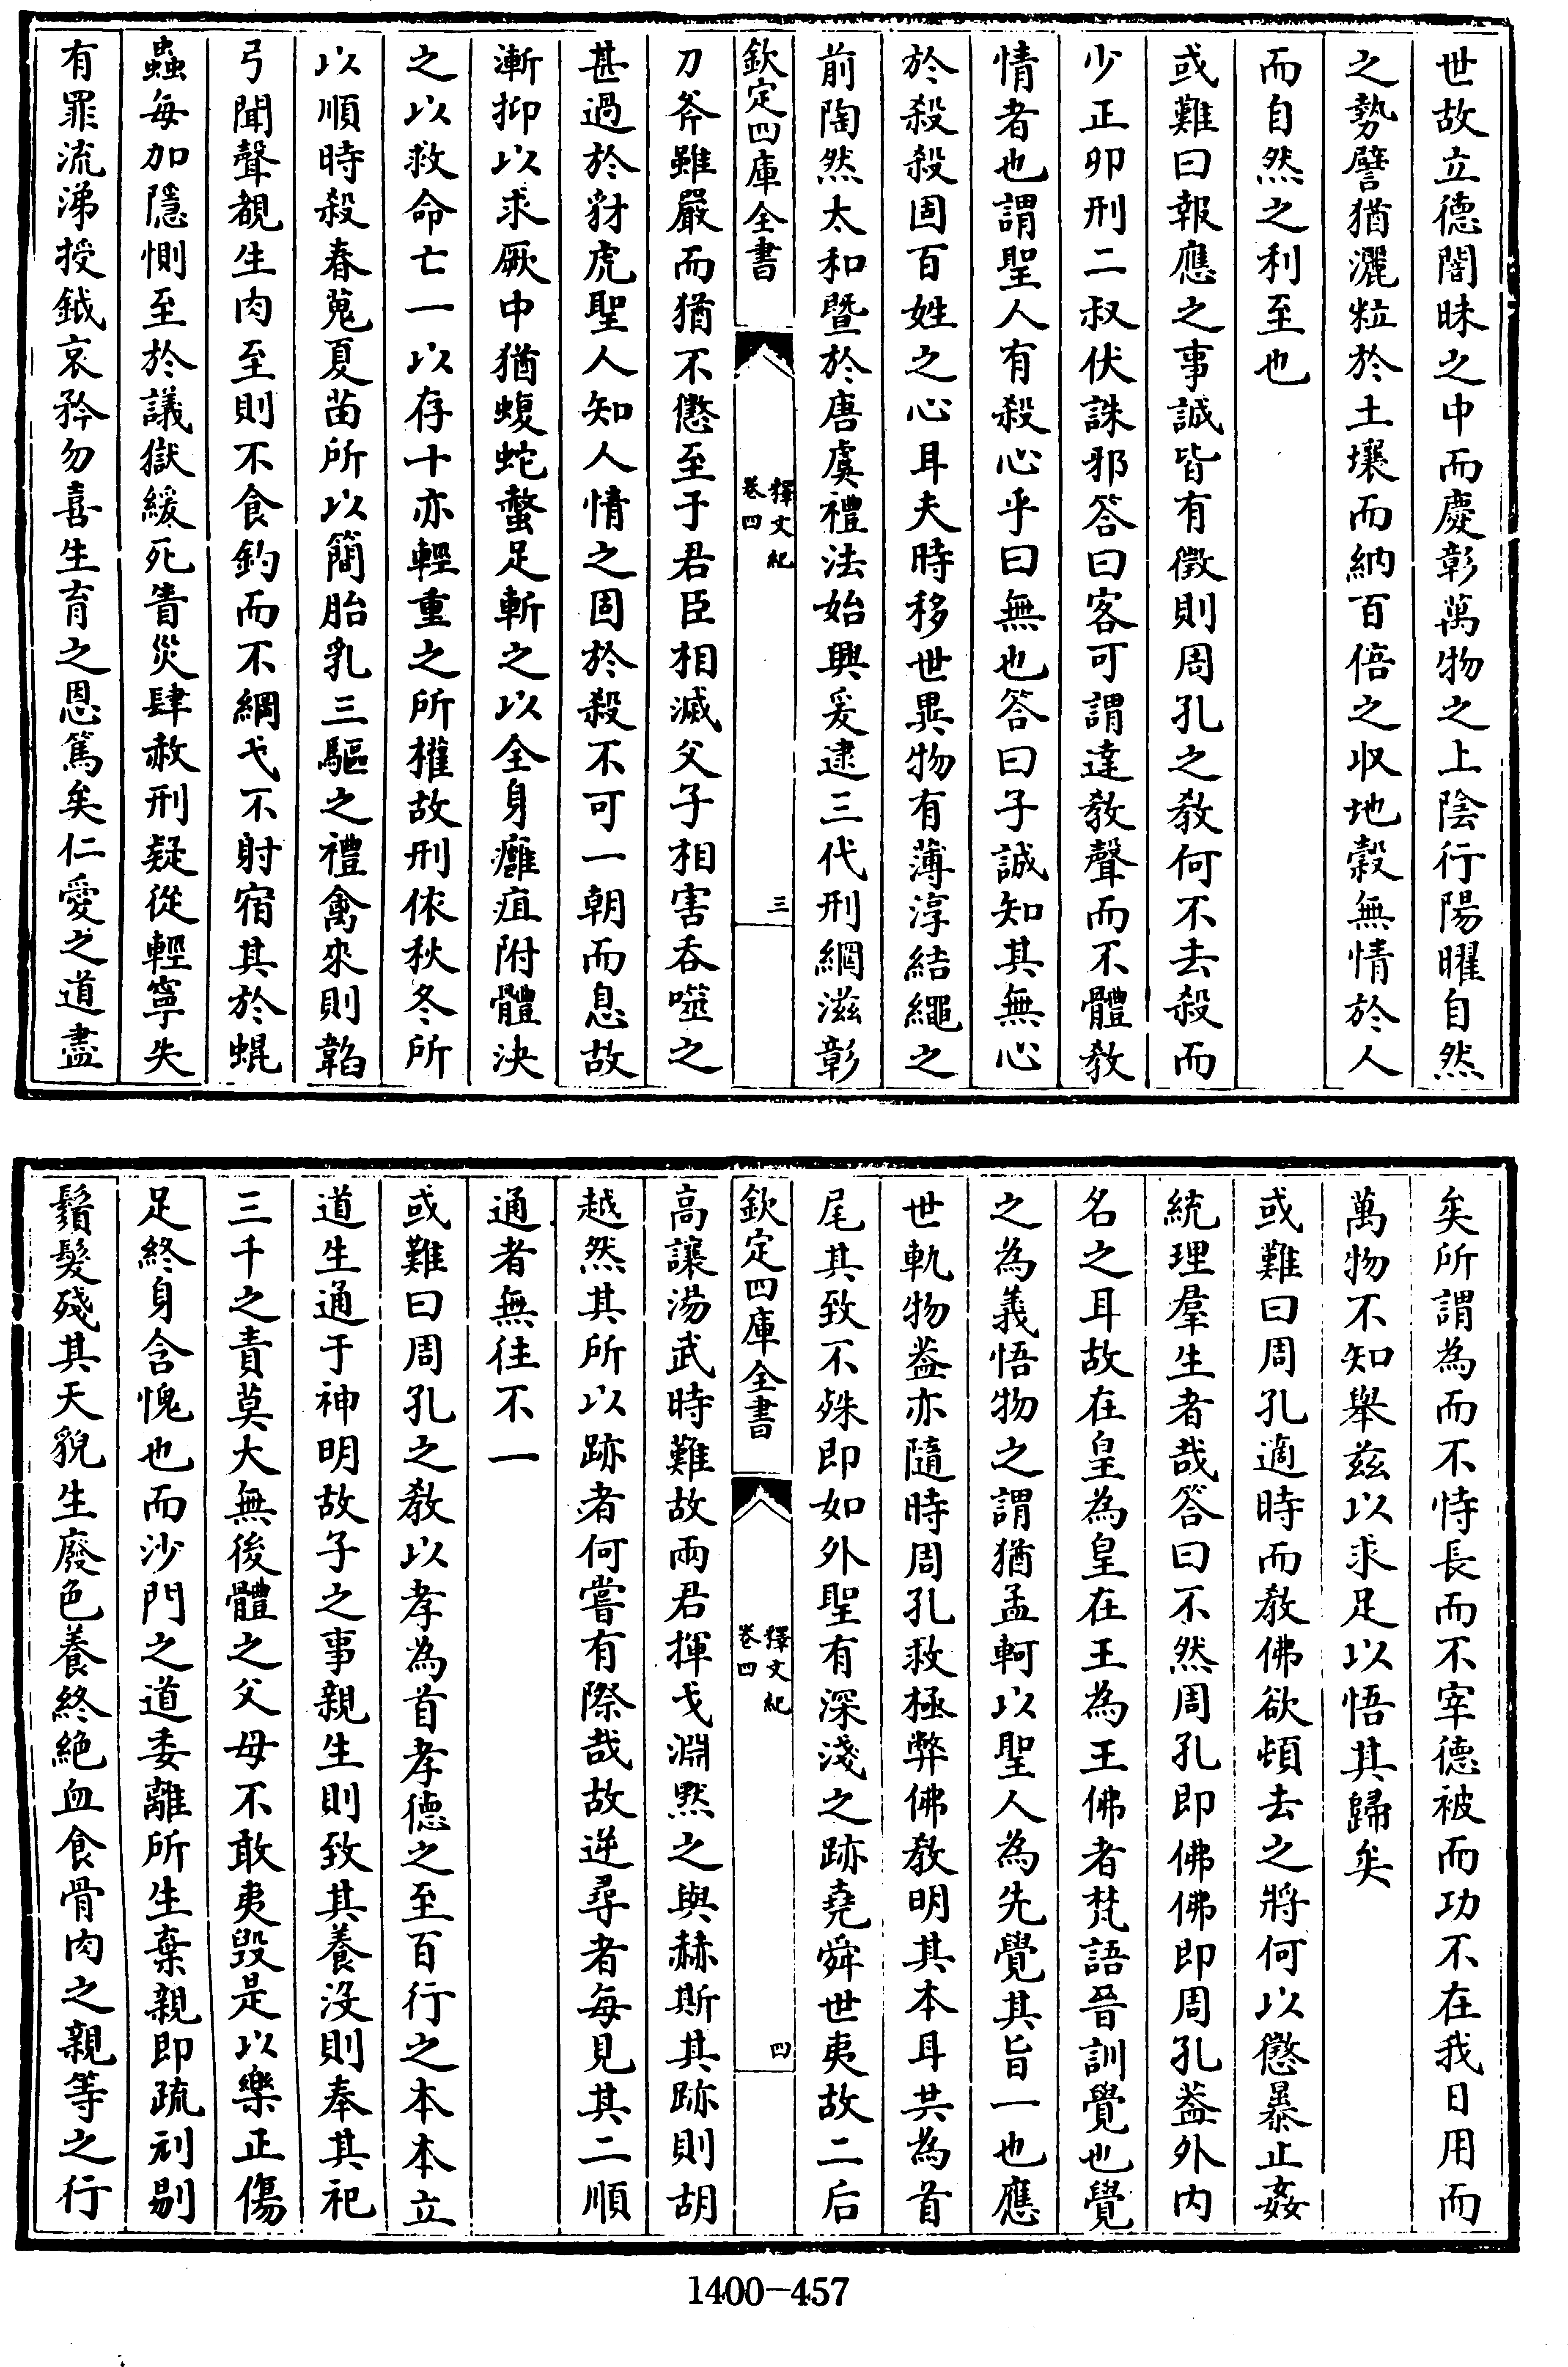 世故立德闇昧之中而慶彰萬物之上陰行陽曜自然
之勢譬猶灑粒於土壤而納百倍之收地穀無情於人
而自然之利至也
或難曰報應之事誠皆有徵則周孔之教何不去殺而
少正卯刑二叔伏誅邪答曰客可謂達教聲而不體教
情者也謂聖人有殺心乎曰無也答曰子誠知其無心
於殺殺固百姓之心耳夫時移世異物有薄淳結繩之
前陶然太和暨於唐虞禮法始興爰逮三代刑網滋彰
欽定四庫全書
釋文紀
卷四
三
刀斧雖嚴而猶不懲至于君臣相滅父子相害吞噬之
甚過於豺虎聖人知人情之固於殺不可一朝而息故
漸抑以求厥中猶蝮蛇螫足斬之以全身癰疽附體決
之以救命亡一以存十亦輕重之所權故刑依秋冬所
以順時殺春蒐夏苗所以簡胎乳三驅之禮禽來則韜
弓聞聲覩生肉至則不食釣而不網弋不射宿其於蜫
蟲每加隱惻至於議獄緩死眚災肆赦刑疑從輕寧失
有罪流涕授鉞哀矜勿喜生育之恩篤矣仁愛之道盡
矣所謂為而不恃長而不宰德被而功不在我日用而
萬物不知舉兹以求足以悟其歸矣
或難曰周孔適時而教佛欲頓去之將何以懲暴止姦
統理羣生者哉答曰不然周孔即佛佛即周孔葢外内
名之耳故在皇為皇在王為王佛者梵語晉訓覺也覺
之為義悟物之謂猶孟軻以聖人為先覺其旨一也應
世軌物葢亦隨時周孔救極弊佛教明其本耳共為首
尾其致不殊即如外聖有深淺之跡堯舜世夷故二后
欽定四庫全書
釋文紀
卷四
四
高讓湯武時難故兩君揮戈淵黙之與赫斯其跡則胡
越然其所以跡者何嘗有際哉故逆尋者每見其二順
通者無往不一
或難曰周孔之教以孝為首孝德之至百行之本本立
道生通于神明故子之事親生則致其養沒則奉其祀
三千之責莫大無後體之父母不敢夷毀是以樂正傷
足終身含愧也而沙門之道委離所生棄親即疏刓剔
鬚髮殘其天貌生廢色養終絶血食骨肉之親等之行
1400-457